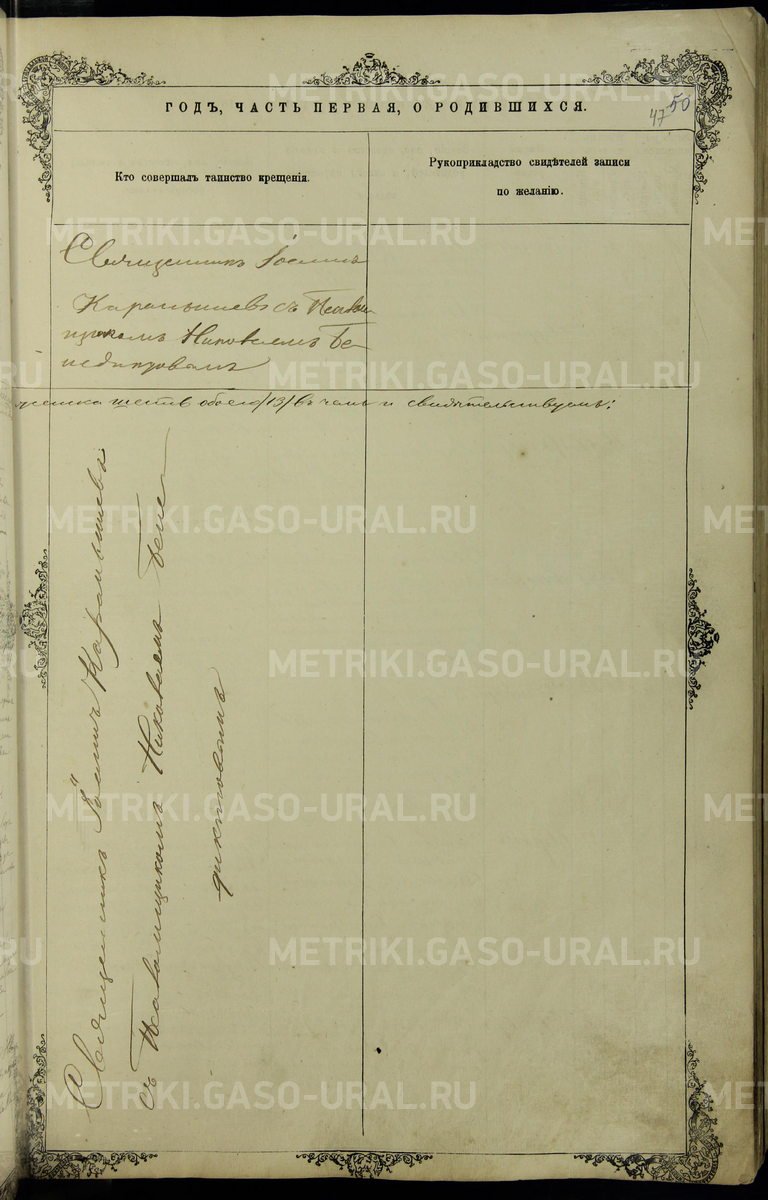 ГОДЪ, ЧАСТЬ ПЕРВАЯ, О РОДИВШИХСЯ.
47 50
Кто совершалъ таинство крещенія.
Рукоприкладство свидѣтелей записи
по желанію.
Священникъ Іоаннъ
Карамышевъ съ Псалом
щикомъ Николаемъ Бе
недиктовымъ
обоего /13/ въ чемъ и свидѣтельствуемъ:
Священникъ Іоаннъ Карамышевъ
съ Псаломщикомъ Николаемъ Бене
диктовымъ
METRIKI.GASO-URAL.RU